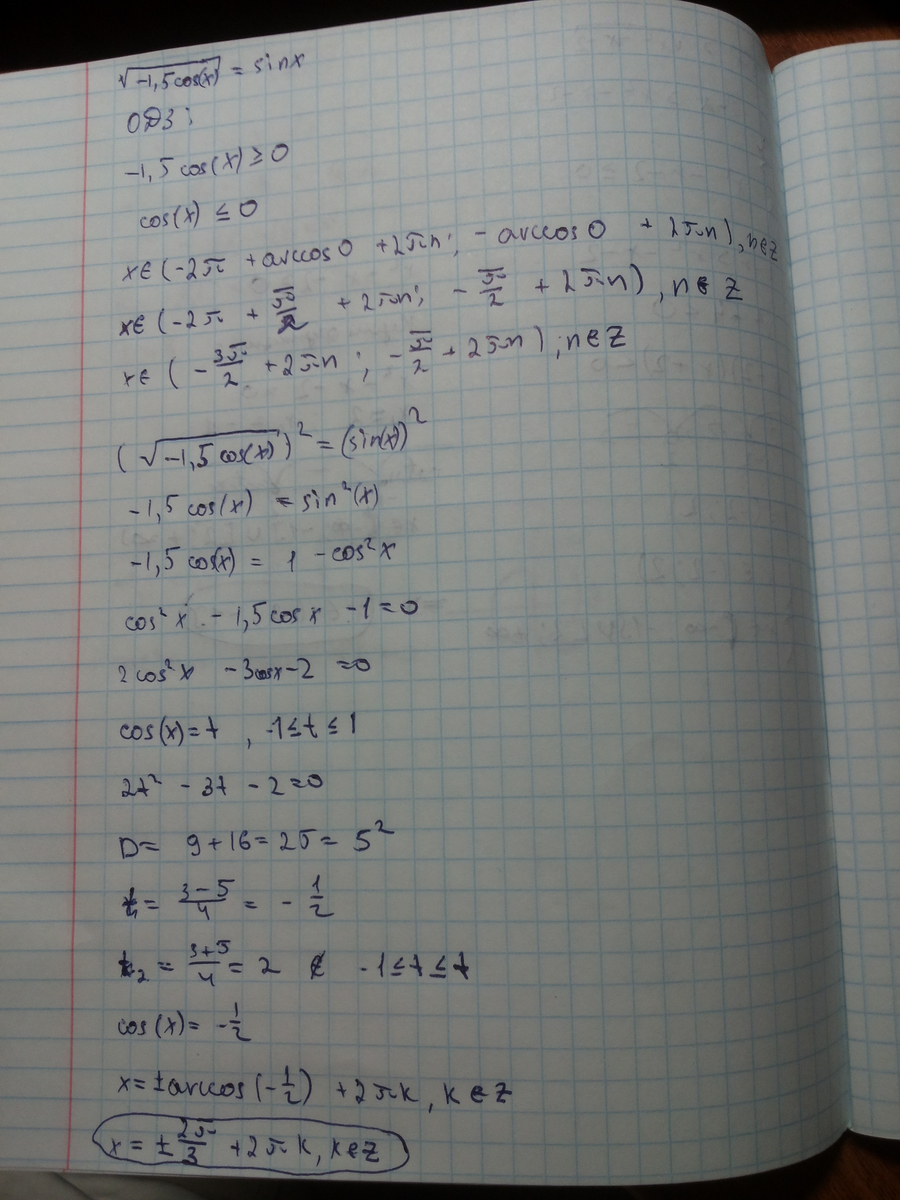 √-1,5cos(x) = sinx
ОДЗ:
-1,5 cos(x) ≥ 0
cos(x) ≤ 0
x∈(-2π + arccos0 + 2πn; - arccos0 + 2πn), n∈Z
x∈(-2π + π/2 + 2πn; - π/2 + 2πn), n∈Z
x∈(-3π/2 + 2πn; - π/2 + 2πn); n∈Z
(√-1,5 cos(x))² = (sin(x))²
-1,5 cos(x) = sin²(x)
-1,5 cos(x) = 1 - cos²x
cos²x - 1,5cosx - 1 = 0
2cos²x - 3cosx - 2 = 0
cos(x) = t, -1 ≤ t ≤ 1
2t² - 3t - 2 = 0
D = 9 + 16 = 25 = 5²
t₁ = (3-5)/4 = - 1/2
t₂ = (3+5)/4 = 2 ∉ -1 ≤ t ≤ 1
cos(x) = - 1/2
x = ± arccos(-1/2) + 2πk, k∈Z
x = ± 2π/3 + 2πk, k∈Z